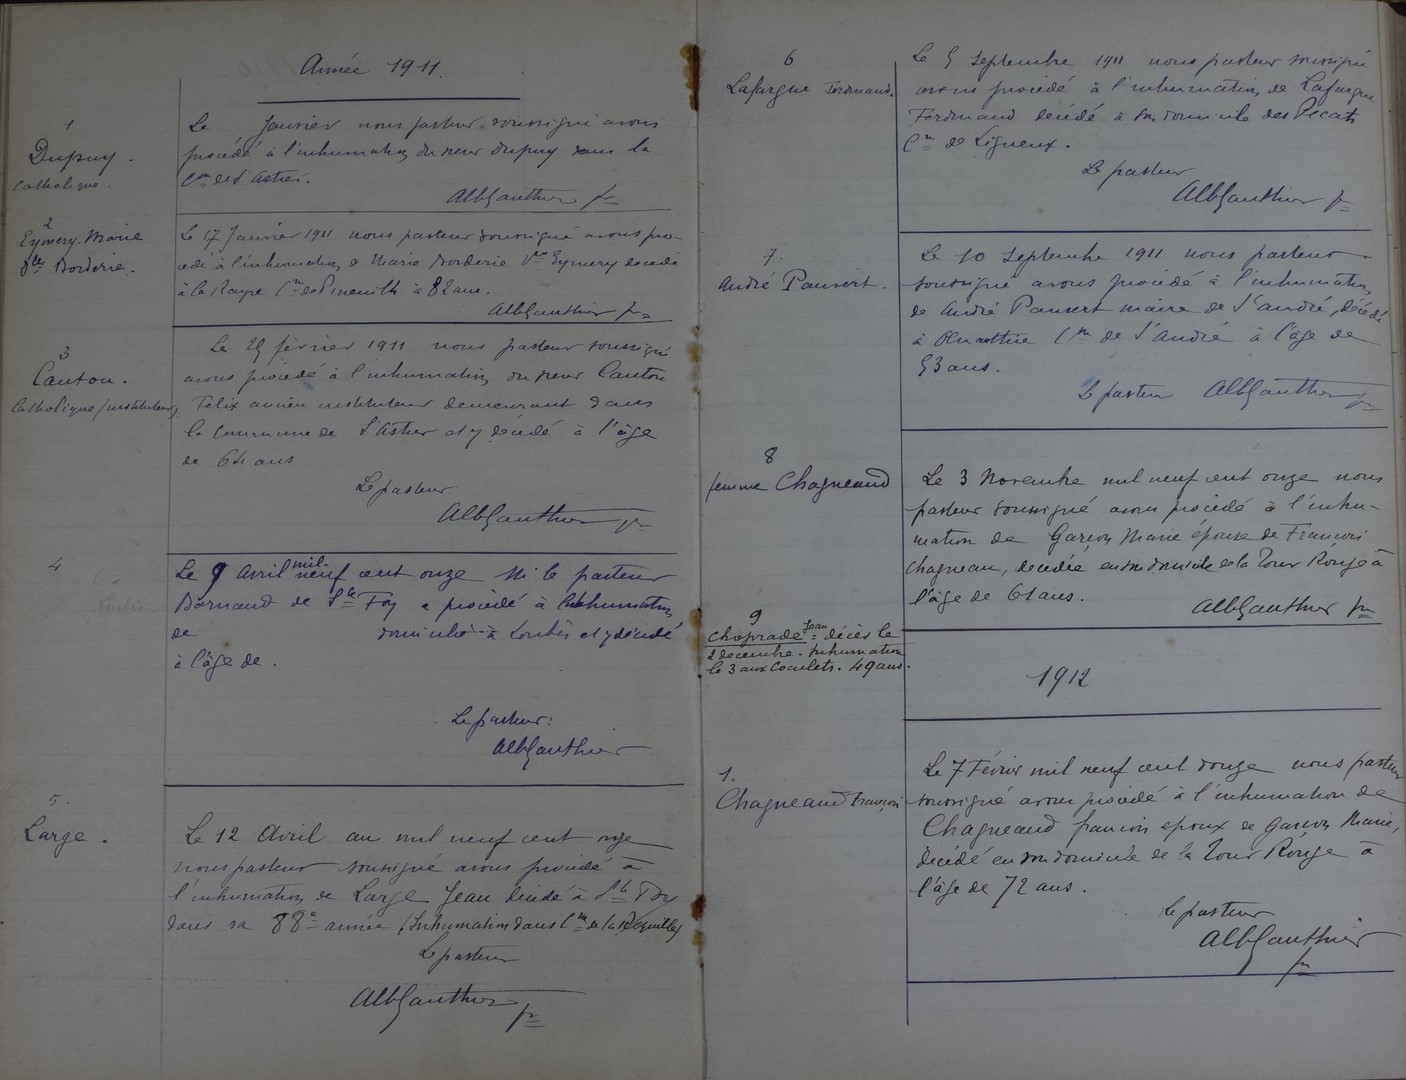 Année 1911.
1
Dupuy.
Catholique.
Le Janvier nous pasteur soussigné avons
procédé à l'inhumation du sieur Dupuy dans la
Cne de St Astier.
AlbGauthier
2
Eymery. Marie
Vve Borderie.
Le 17 Janvier 1911 nous pasteur soussigné avons pro-
cédé à l'inhumation de Marie Borderie Vve Eymery décédée
à la Rayre Cne de à 82 ans.
AlbGauthier
3
Canton.
Catholique (instituteur)
Le 29 février 1911 nous pasteur soussigné
avons procédé à l'inhumation du sieur Canton
Felix ancien instituteur demeurant dans
la commune de St Astier et y décédé à l'âge
de 64 ans
Le pasteur
AlbGauthier
4
Le 9 Avril mil neuf cent onze Mr le pasteur
Barnaud de Ste Foy a procédé à l'inhumation
de domicilié à Loubès et y décédé
à l'âge de.
Le pasteur:
AlbGauthier
5.
Large.
Le 12 Avril an mil neuf cent onze
nous pasteur soussigné avons procédé à
l'inhumation de Large Jean décédé à Ste Foy
dans sa 88e année (Inhumation dans Cne de la Roquille)
Le pasteur
AlbGauthier
6
Lafargue Ferdinand.
Le 5 Septembre 1911 nous pasteur soussigné
avons procédé à l'inhumation de Lafargue
Ferdinand décédé à son domicile des Pécats
Cne de Ligueux.
Le pasteur
AlbGauthier
7.
André Pauvert.
Le 10 Septembre 1911 nous pasteur
soussigné avons procédé à l'inhumation
de André Pauvert maire de St André, décédé
à Cne de St André à l'âge de
53 ans.
Le pasteur AlbGauthier
8
femme Chagneaud
Le 3 Novembre mil neuf cent onze nous
pasteur soussigné avons procédé à l'inhu-
mation de Garçon Marie épouse de François
Chagneau, décédée en son domicile de la Tour Rouge à
l'âge de 61 ans.
AlbGauthier
9
Chaprade Jean = décès le
2 decembre. Inhumation
le 3 aux Coculets. 49 ans.
1912
1.
Chagneaud François
Le 7 Février mil neuf cent douze nous pasteur
soussigné avons procédé à l'inhumation de
Chagneaud francois epoux de Garçon Marie,
décédé en son domicile de la Tour Rouge à
l'âge de 72 ans.
Le pasteur
AlbGauthier